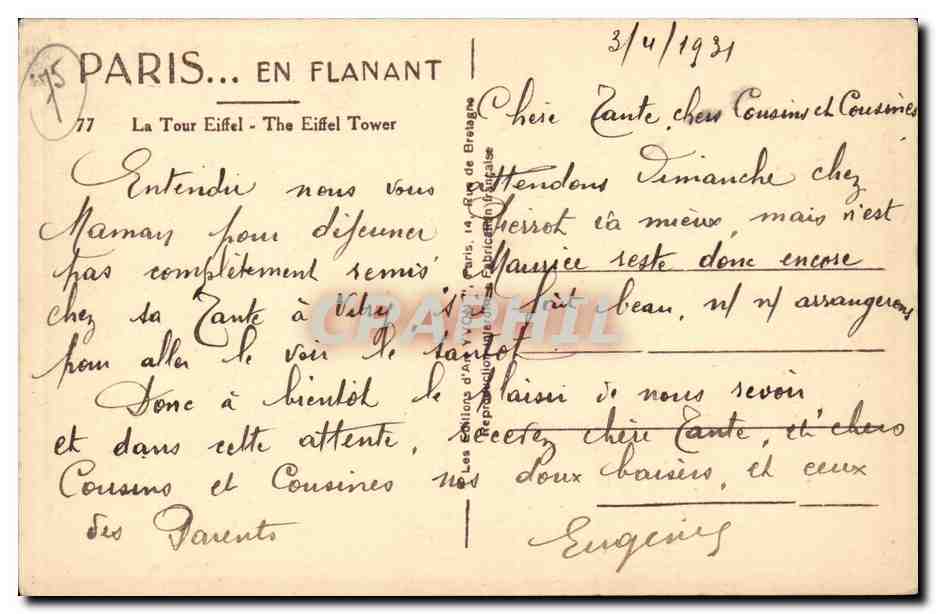 3/4/1931
75
PARIS... EN FLANANT
77 La Tour Eiffel - The Eiffel Tower
Chère Tante, chers Cousins et Cousines
Entendu nous vous attendons Dimanche chez
Maman pour déjeuner Pierrot va mieux, mais n'est
pas complètement remis Maurice reste donc encore
chez sa Tante à Vitry, s'il fait beau, n/ n/ arrangerons
pour aller le voir le tantôt
Donc à bientôt le plaisir de nous revoir
et dans cette attente, recevez chère Tante, et chers
Cousins et Cousines nos doux baisers, et ceux
des Parents
Eugénie
Les Editions d'Art YVON, Paris, 14, Rue de Bretagne
Reproduction interdite Fabrication française
CRAPHIL